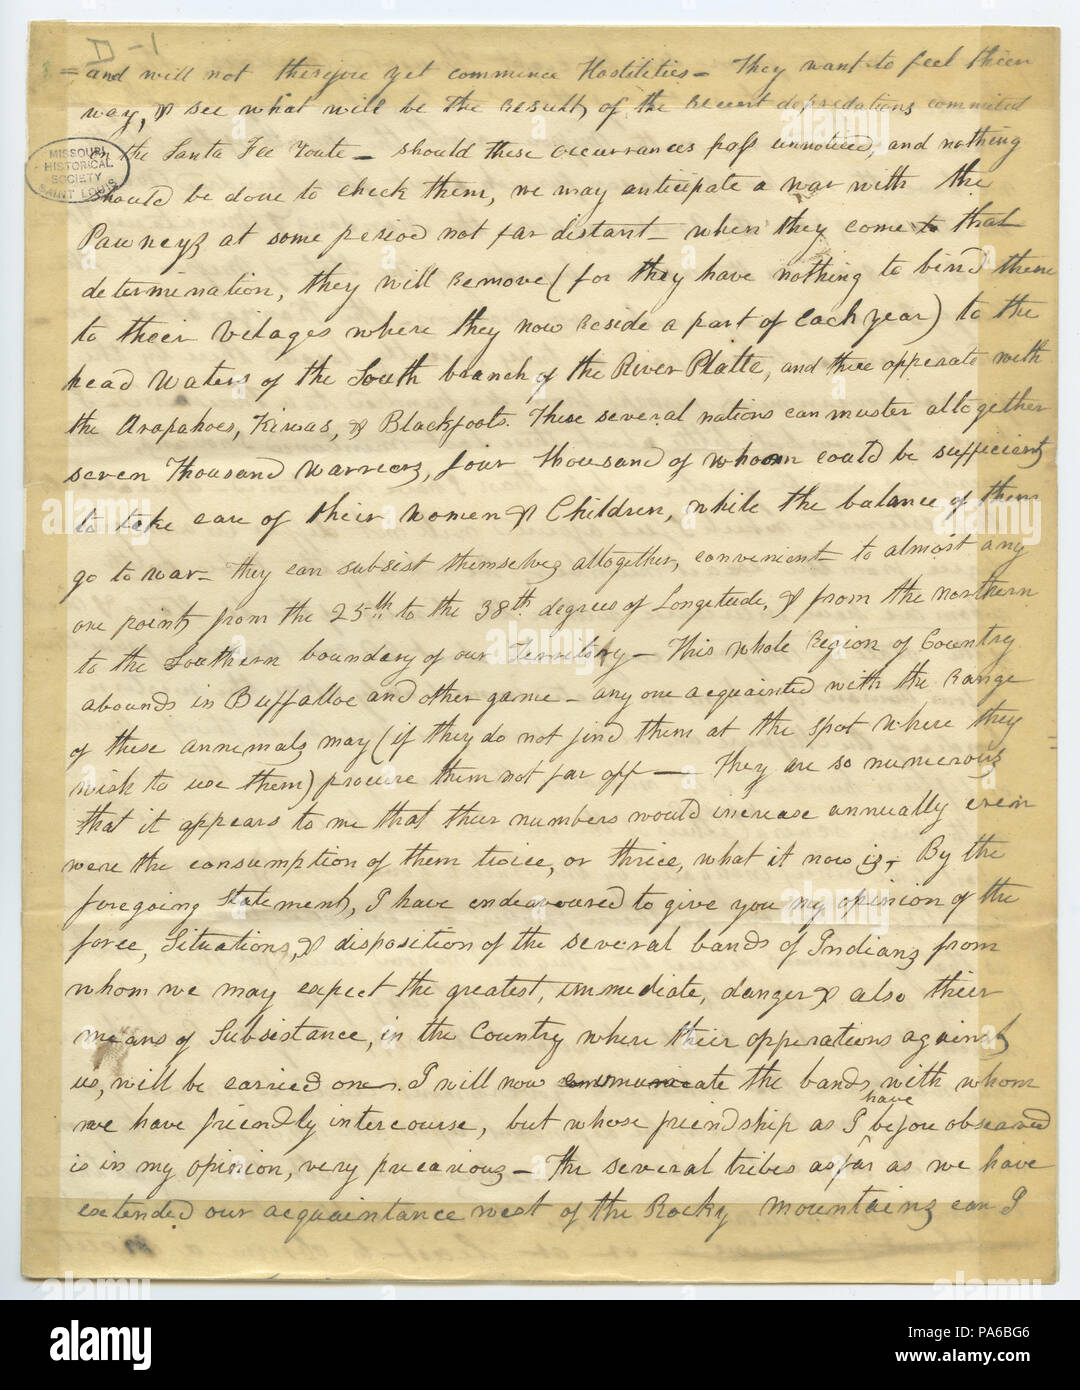 1-D
= and will not therefore yet commence Hostilities – They want to feel their
way, & see what will be the result, of the recent depredations commited
on the Santa Fee Route – should these occurrances pass unnoticed, and nothing
MISSOURI
HISTORICAL
SOCIETY
SAINT LOUIS
should be done to check them, we may anticipate a war with the
Pawneys at some period not far distant – when they come to that
determination, they will remove (for they have nothing to bind them
to their Vilages where they now reside a part of each year) to the
head Waters of the South branch of the River Platte, and there opperate with
the Arapahoes, Kiwas, & Blackfoots. These several nations can muster altogether
seven Thousand Warriers, four thousand of whom could be sufficient
to take care of their Women & Children, while the balance of them
go to war – they can subsist themselves altogether, convenient to almost any
one point, from the 25th to the 38th degrees of Longetude, & from the northern
to the Southern boundary of our Territory – This whole Region of Country
abounds in Buffalloe and other game – any one acquainted with the Range
of these annemals may (if they do not find them at the spot where they
wish to use them) procure them not far off — They are so numerous
that it appears to me that their numbers would increase annually even
were the consumption of them twice, or thrice, what it now is, By the
foregoing statement, I have endeavoured to give you my opinion of the
force, Situations, & disposition of the several bands of Indians from
whom we may expect the greatest, immediate, danger & also their
means of Subsistance, in the Country where their opperations against
us, will be carried on. I will now communicate the bands, with whom
we have friendly intercourse, but whose friendship as I have before observed
is in my opinion, very precarious – The several tribes as far as we have
extended our acquaintance west of the Rocky Mountains can I
alamy
PA6BG6
www.alamy.com